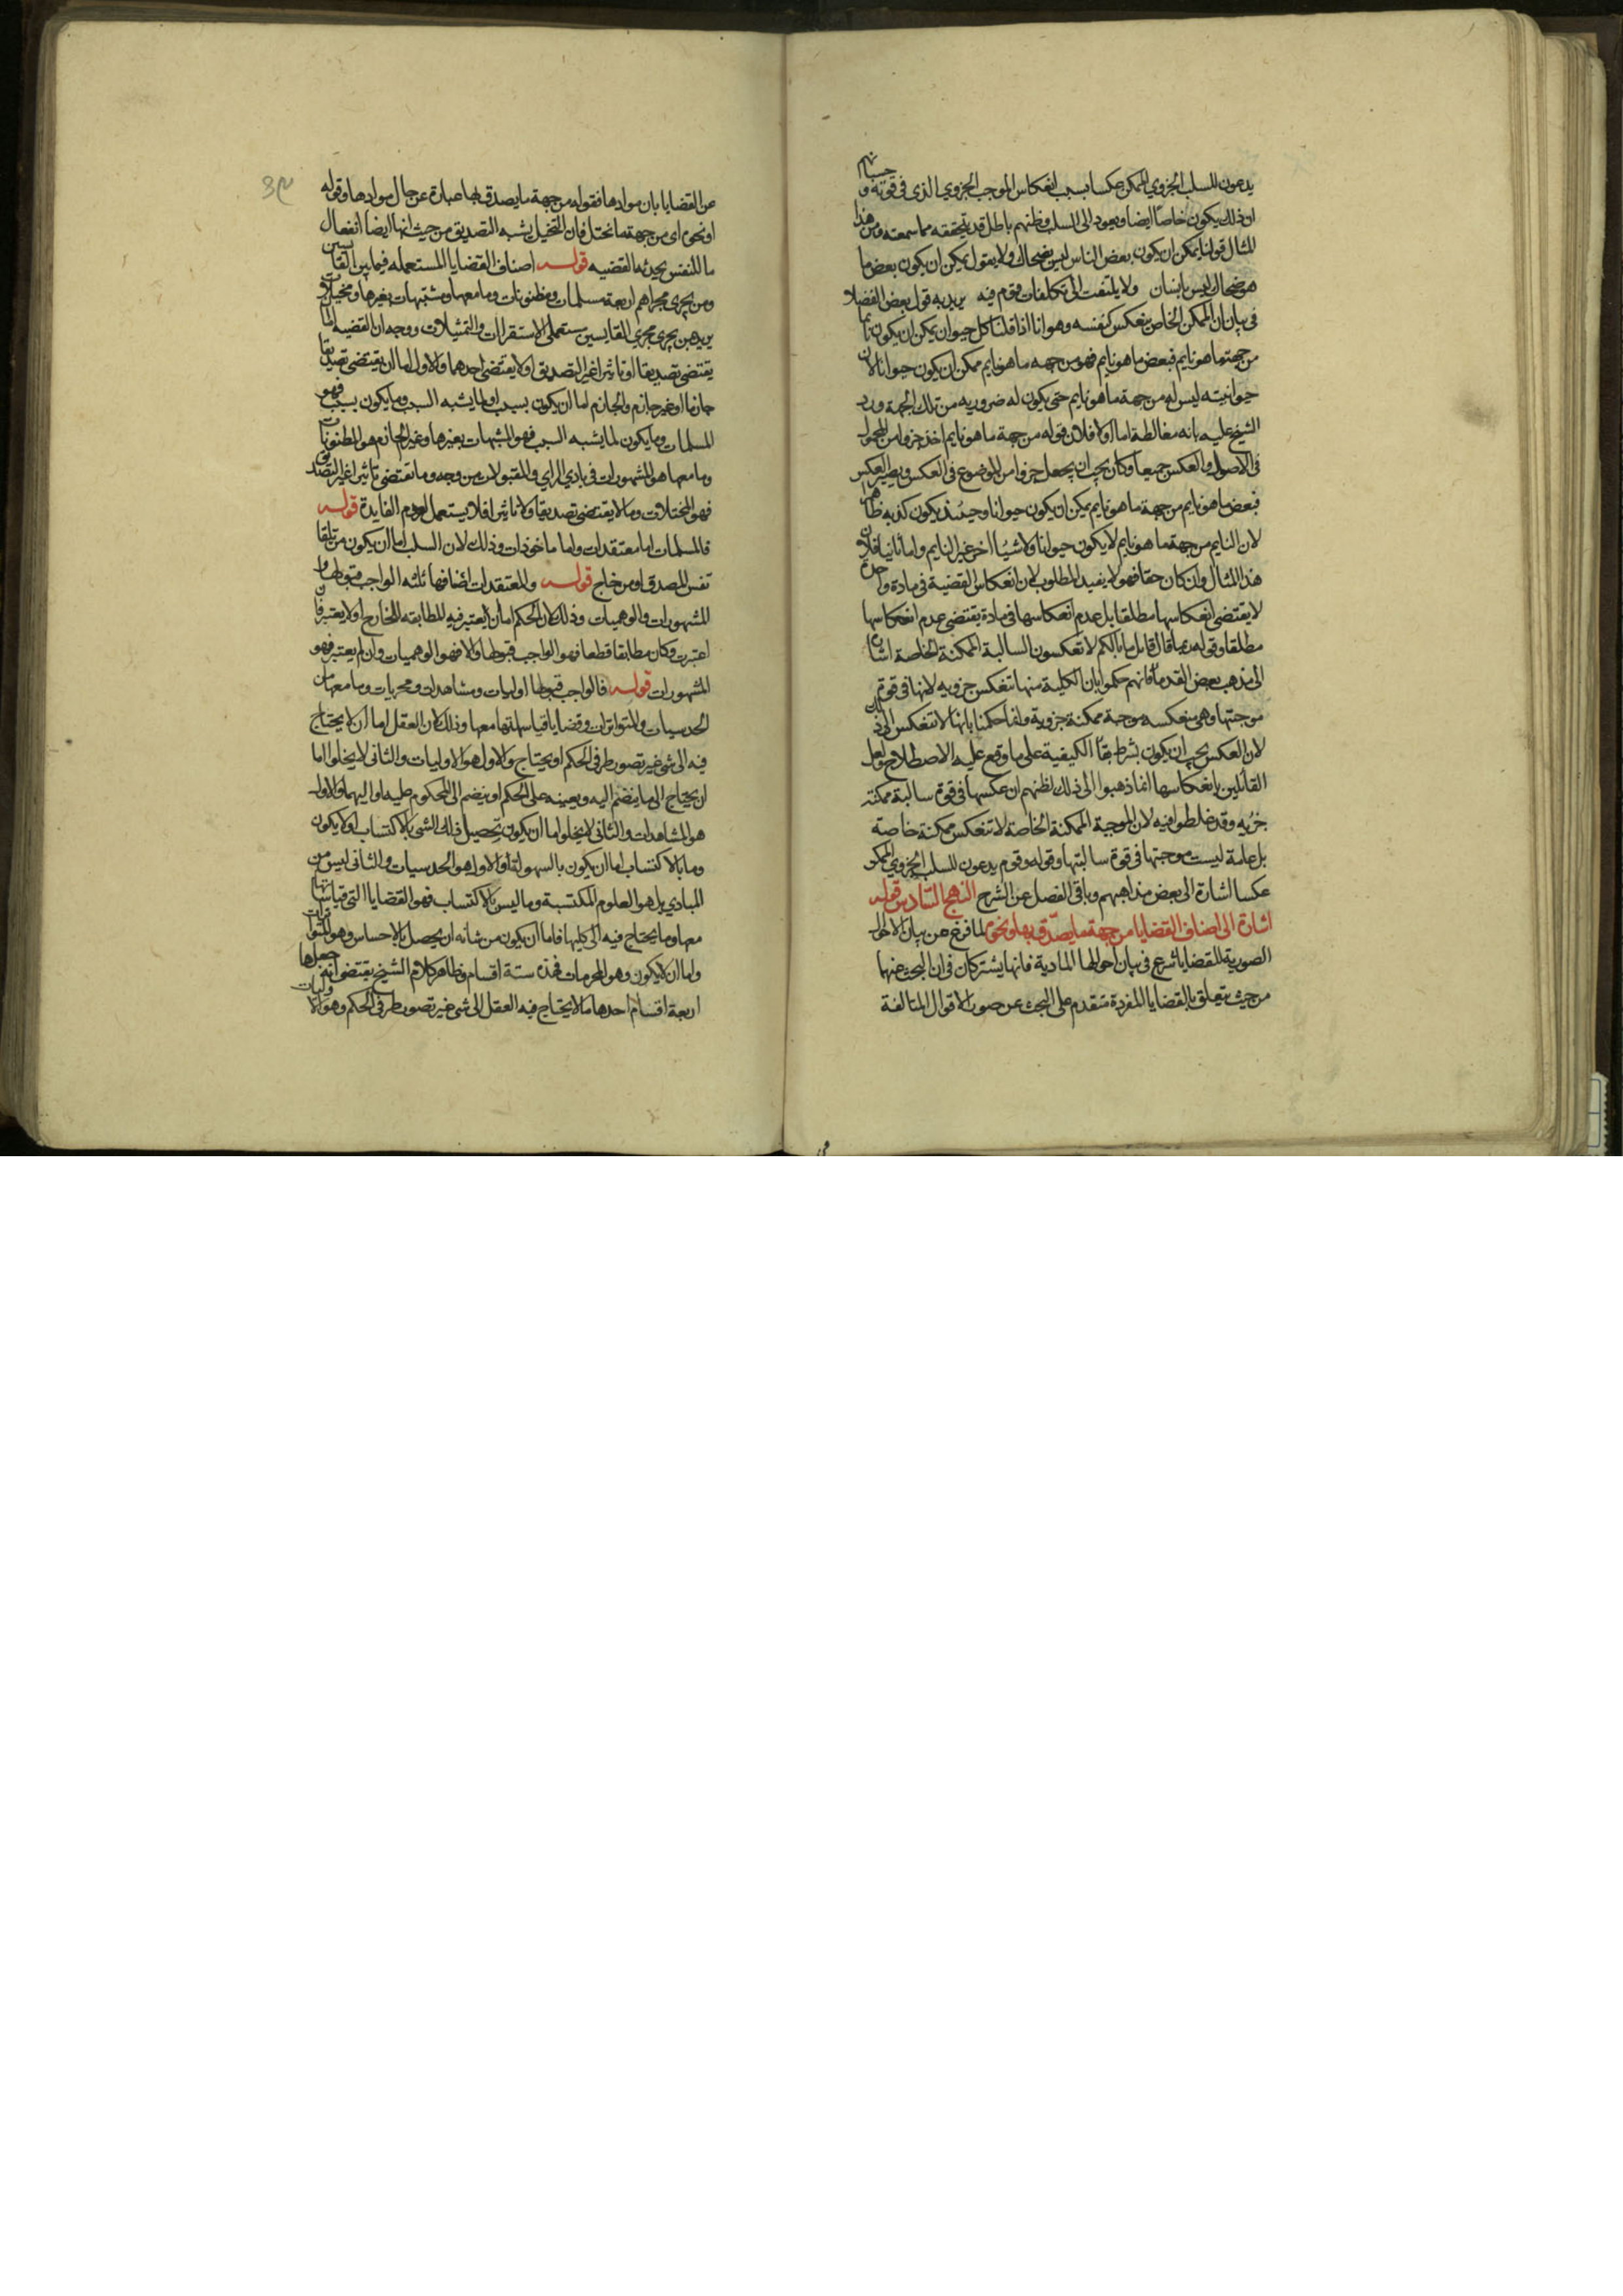 يدعون للسلب الجزوي الممكن عكسا بسبب انعكاس الموجب الجزوي الذى فى قوته و حسبانهم
ان ذلك يكون خاصا ايضا ويعود الى السلب وظنهم باطل قد يتحققه مما سمعته ومن هذا
المثال قولنا يمكن ان يكون بعض الناس ليس بضحاك ولا يقول يمكن ان يكون بعض ما
هو ضحاك ليس بانسان ولا يلتفت الى تكلفات قوم فيه يريد به قول بعض الفضلاء
فى بيان ان الممكن الخاص ينعكس كنفسه وهو انا اذا قلنا كل حيوان يمكن ان يكون نايما
من جهة ما هو نايم فبعض ما هو نايم فهو من جهه ما هو نايم ممكن ان يكون حيوانا لان
حيوانيته ليس له من جهة ما هو نايم حتى يكون له ضروريه من تلك الجهة ورد
الشيخ عليه بانه مغالطة اما اولا فلان قوله من جهة ما هو نايم اخذ جزوا من المحمول
فى الاصل والعكس جميعا وكان يجب ان يجعل جزوا من الموضوع فى العكس ويصير العكس
فبعض ما هو نايم من جهة ما هو نايم يمكن ان يكون حيوانا وحينئذ يكون كذبه ظاهرا
لان النايم من جهة ما هو نايم لا يكون حيوانا ولا شيئا اخر غير النايم واما ثانيا فلان
هذا المثال وان كان حقا فهو لا يفيد المطلوب لان انعكاس القضية فى مادة واحدة
لا يقتضى انعكاسها مطلقا بل عدم انعكاسها فى مادة يقتضى عدم انعكاسها
مطلقا وقوله ربما قال قايل ما بالكم لا تعكسون السالبة الممكنة الخاصة اشارة
الى مذهب بعض القدما فانهم حكموا بان الكلية منها تنعكس جزويه لانها فى قوة
موجبتها وهى منعكسه موجبة ممكنة جزوية وانما حكمنا بانها لا تنعكس الى ذلك
لان العكس يجب ان يكون بشرط بقا الكيفية على ما وقع عليه الاصطلاح ولعل
القائلين بانعكاسها انما ذهبوا الى ذلك لظنهم ان عكسها فى قوة سالبة ممكنة
جزيه وقد غلطوا فيه لان الموجبة الممكنة الخاصة لا تنعكس ممكنة خاصة
بل عامة ليست موجبتها فى قوة سالبتها وقوله وقوم يدعون للسلب الجزوي الممكن
عكسا اشارة الى بعض مذاهبهم وباقى الفصل عن الشرح النهج السادس قوله
اشارة الى اصناف القضايا من جهة ما يصدق بها ونحوه لما فرغ عن بيان الاحوال
الصورية للقضايا شرع فى بيان احوالها المادية فانها يشتركان فى ان البحث عنهما
من حيث يتعلق بالقضايا المفردة متقدم على البحث عن صور الاقوال المتالفة
عن القضايا بان موادها فقوله من جهة ما يصدق بها عبارة عن حال موادها وقوله
او نحوه اى من جهة ما تخيل فان التخيل يشبه التصديق من حيث انها ايضا انفعال
ما للنفس يحدثه القضيه قولـه اصناف القضايا المستعمله فيما بين القايسين
ومن يجرى مجراهم اربعة مسلمات ومظنونات وما معها ومشتبهات بغيرها ومخيلات
يريد بمن يجرى مجرى القايسين مستعملى الاستقراات والتمثيلات ووجه ان القضيه اما
يقتضى تصديقا او تاثيرا غير التصديق او لا يقتضى احدهما والاول اما ان يقتضى تصديقا
جازما او غير جازم والجازم اما ان يكون بسبب او لما يشبه السبب وما يكون بسبب فهو
المسلمات وما يكون لما يشبه السبب فهو المشبهات بغيرها وغير الجازم هو المظنونات
وما معها هو المشهورات فى بادي الراي والمقبولات من وجه وما يقتضى تاثيرا غير التصديق
فهو المخيلات وما لا يقتضى تصديقا ولا تاثيرا فلا يستعمل لعدم الفايدة قولـه
فالمسلمات اما معتقدات واما ماخوذات وذلك لان السلب اما ان يكون من تلقا
نفس المصدق او من خارج قولـه والمعتقدات اصنافها ثلثه الواجب قبولها و
المشهورات والوهميات وذلك لان الحكم اما ان يعتبر فيه المطابقه للخارج او لا يعتبر فان
اعتبرت وكان مطابقا قطعا فهو الواجب قبولها والا فهو الوهميات وان لم يعتبر فهو
المشهورات قولـه فالواجب قبولها اوليات ومشاهدات ومجربات وما معها من
الحدسيات والمتواترات وقضايا قياساتها معها وذلك لان العقل اما ان لا يحتاج
فيه الى شى غير تصور طرفى الحكم او يحتاج والاول هو الاوليات والثانى لا يخلوا اما
ان يحتاج الى ما ينضم اليه ويعينه على الحكم او ينضم الى المحكوم عليه او اليهما والاول
هو المشاهدات والثانى لا يخلوا اما ان يكون تحصيل ذلك الشى بالاكتساب او لا يكون
وما بالاكتساب اما ان يكون بالسهولة او لا والاول هو الحدسيات والثانى ليس من
المبادي بل هو العلوم المكتسبة وما ليس بالاكتساب فهو القضايا التى قياساتها
معها وما يحتاج فيه الى كليهما فاما ان يكون من شانه ان يحصل بالاحساس وهو المتواترات
واما ان لا يكون وهو المجربات فهذه ستة اقسام وظاهر كلام الشيخ يقتضى انه جعلها
اربعة اقسام احدها ما لا يحتاج فيه العقل الى شى غير تصور طرفى الحكم وهو الاوليات